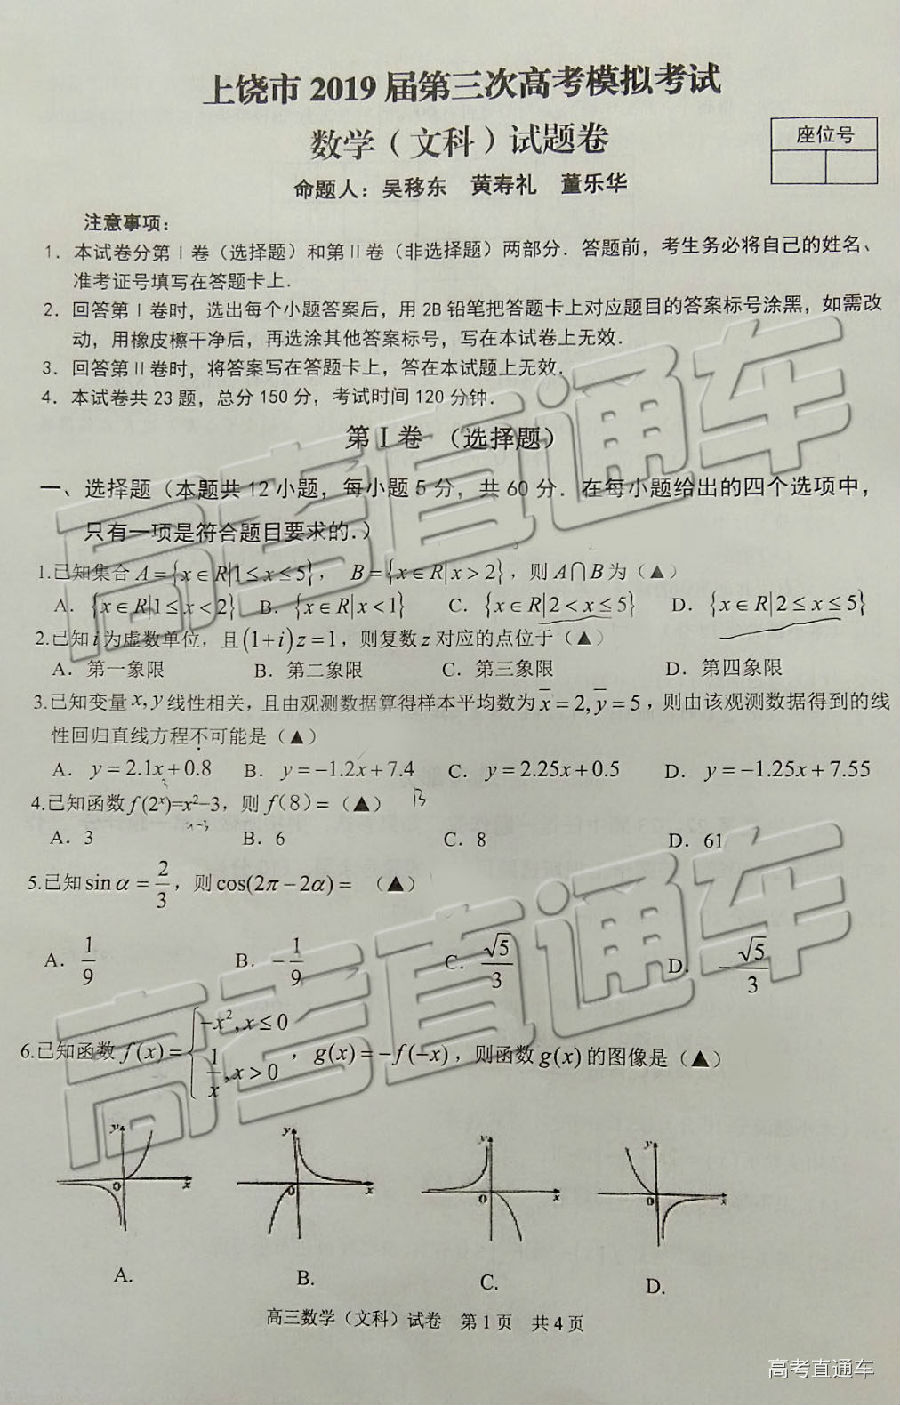 上饶市 2019 届第三次高考模拟考试
数学（文科）试题卷
座位号
命题人：吴移东 黄寿礼 董乐华
注意事项：
1. 本试卷分第Ⅰ卷（选择题）和第Ⅱ卷（非选择题）两部分．答题前，考生务必将自己的姓名、
准考证号填写在答题卡上．
2. 回答第Ⅰ卷时，选出每个小题答案后，用 2B 铅笔把答题卡上对应题目的答案标号涂黑，如需改
动，用橡皮檫干净后，再选涂其他答案标号，写在本试卷上无效．
3. 回答第Ⅱ卷时，将答案写在答题卡上，答在本试题上无效．
4. 本试卷共 23 题，总分 150 分，考试时间 120 分钟．
第Ⅰ卷 （选择题）
一、选择题（本题共 12 小题，每小题 5 分，共 60 分．在每小题给出的四个选项中，
只有一项是符合题目要求的．）
1.已知集合 A={x∈R|1≤x≤5}， B={x∈R|x>2}，则A∩B为（▲）
A. {x∈R|1≤x<2} B. {x∈R|x<1} C. {x∈R|2<x≤5} D. {x∈R|2≤x≤5}
2.已知 i 为虚数单位，且(1+i)z=1，则复数 z 对应的点位于（▲）
A. 第一象限 B. 第二象限 C. 第三象限 D. 第四象限
3.已知变量 x, y 线性相关，且由观测数据算得样本平均数为 x̄=2, ȳ=5，则由该观测数据得到的线
性回归直线方程不可能是（▲）
A. y=2.1x+0.8 B. y=−1.2x+7.4 C. y=2.25x+0.5 D. y=−1.25x+7.55
4.已知函数 f(2ˣ)=x²−3，则 f(8)=（▲）
A. 3 B. 6 C. 8 D. 61
5.已知 sin α = 2/3，则 cos(2π−2α)= （▲）
A. 1/9 B. −1/9 C. √5/3 D. −√5/3
6.已知函数 f(x)={−x², x≤0; 1/x, x>0，g(x)=−f(−x)，则函数 g(x) 的图像是（▲）
y y y y
O x O x O x O x
A. B. C. D.
高三数学（文科）试卷 第 1 页 共 4 页
高考直通车
高考直通车
高考直通车